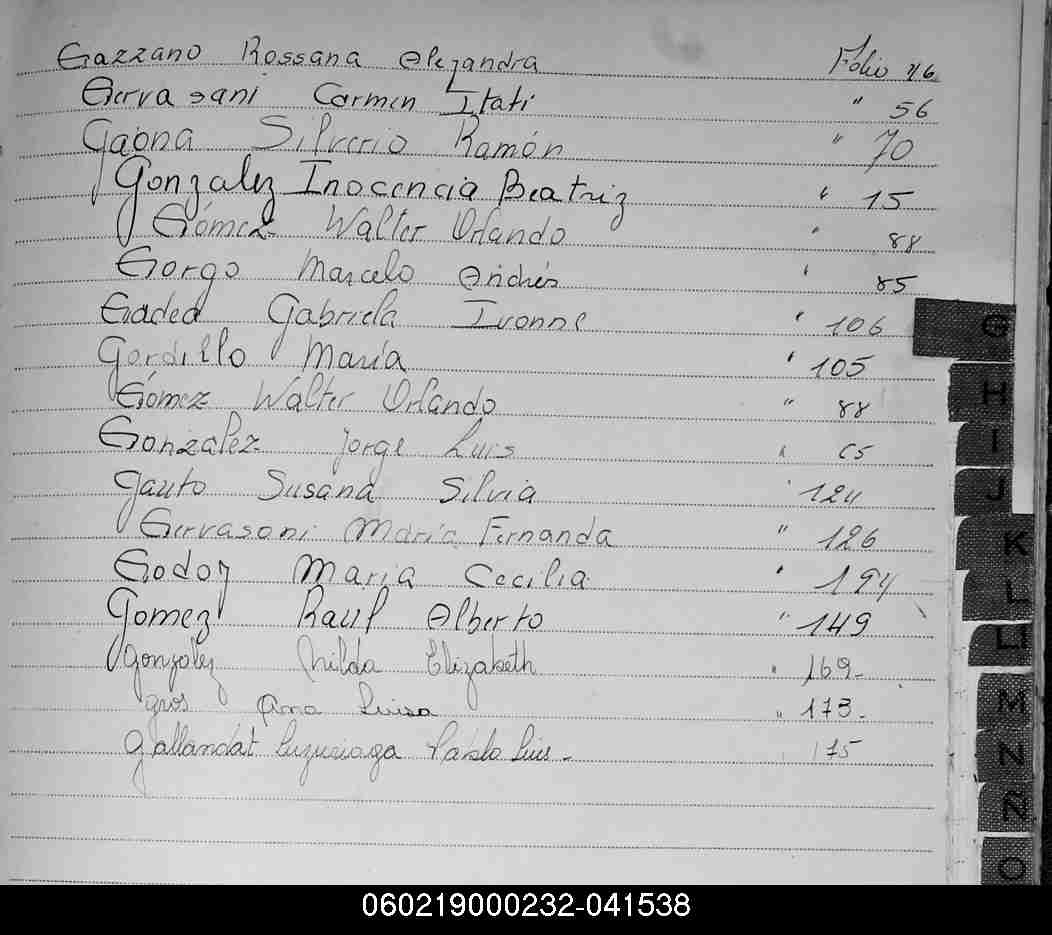 Gazzano Rossana Alejandra Folio 46
Gervasani Carmen Itati " 56
Gaona Silverio Ramón " 70
Gonzalez Inocencia Beatriz " 15
Gómez Walter Orlando " 88
Gorgo Marcelo Andrés " 85
Gadea Gabriela Ivonne " 106
Gordillo María " 105
Gómez Walter Orlando " 88
Gonzalez Jorge Luis " 65
Gauto Susana Silvia " 124
Gervasoni María Fernanda " 126
Godoy Maria Cecilia " 194
Gomez Raul Alberto " 149
Gonzalez Nilda Elizabeth " 169-
Gros Ana Luisa " 173-
Gallandat Luzuriaga Pablo Luis - " 175
G
H
I
J
K
L
Ll
M
N
Ñ
O
060219000232-041538